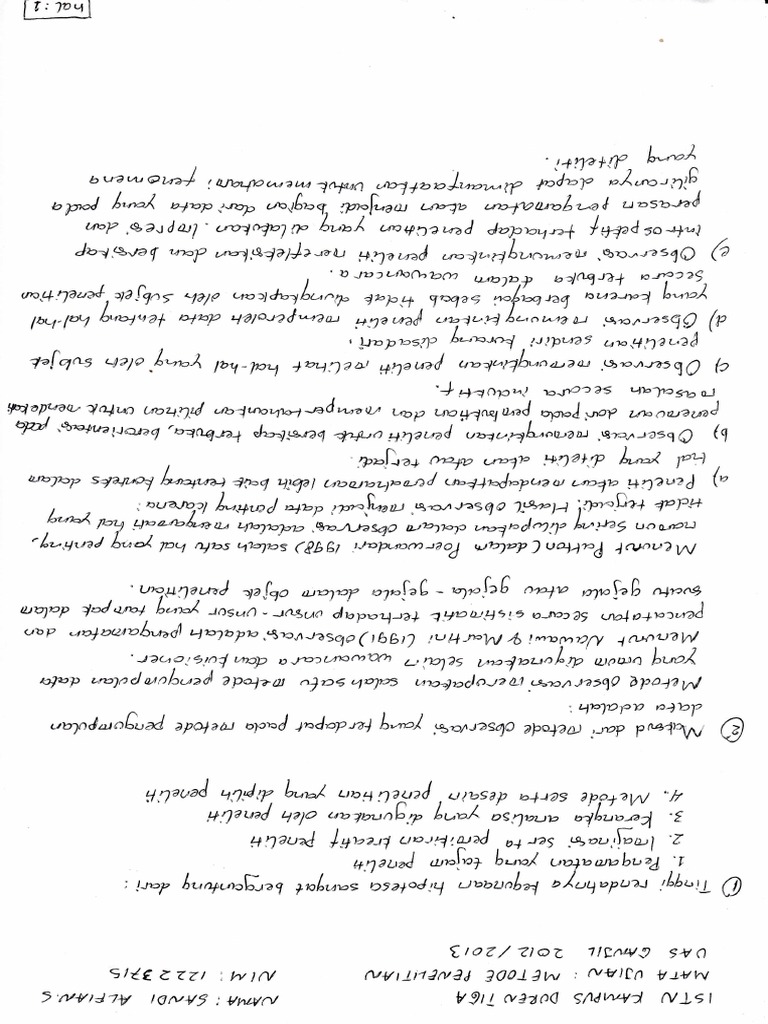 ISTN KAMPUS DUREN TIGA NAMA : SANDI ALFIAN.S
MATA UJIAN : METODE PENELITIAN NIM : 12223715
UAS GANJIL 2012/2013
① Tinggi rendahnya kegunaan hipotesa sangat bergantung dari :
1. Pengamatan yang tajam peneliti
2. Imajinasi serta pemikiran kreatif peneliti
3. Kerangka analisa yang digunakan oleh peneliti
4. Metode serta desain penelitian yang dipilih peneliti
② Maksud dari metode observasi yang terdapat pada metode pengumpulan
data adalah :
Metode observasi merupakan salah satu metode pengumpulan data
yang umum digunakan selain wawancara dan kuisioner.
Menurut Nawawi & Martini (1991) observasi adalah pengamatan dan
pencatatan secara sistimatik terhadap unsur-unsur yang tampak dalam
suatu gejala atau gejala-gejala dalam objek penelitian.
Menurut Patton (dalam Poerwandari 1998) salah satu hal yang penting,
namun sering dilupakan dalam observasi adalah mengamati hal yang
tidak terjadi. Hasil observasi menjadi data penting karena :
a) Peneliti akan mendapatkan pemahaman lebih baik tentang konteks dalam
hal yang diteliti akan atau terjadi.
b) Observasi memungkinkan peneliti untuk bersikap terbuka, berorientasi pada
penemuan dari pada pembuktian dan mempertahankan pilihan untuk mendekati
masalah secara induktif.
c) Observasi memungkinkan peneliti melihat hal-hal yang oleh subjek
penelitian sendiri kurang disadari.
d) Observasi memungkinkan peneliti memperoleh data tentang hal-hal
yang karena berbagai sebab tidak diungkapkan oleh subjek penelitian
secara terbuka dalam wawancara.
e) Observasi memungkinkan peneliti merefleksikan dan bersikap
introspektif terhadap penelitian yang dilakukan. Impresi dan
perasan pengamatan akan menjadi bagian dari data yang pada
gilirannya dapat dimanfaatkan untuk memahami fenomena
yang diteliti.
hal : 1